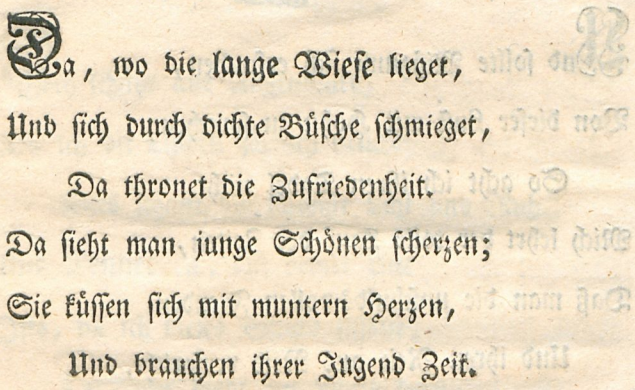 Da, wo die lange Wieſe lieget,
Und ſich durch dichte Büſche ſchmieget,
Da thronet die Zufriedenheit.
Da ſieht man junge Schönen ſcherzen;
Sie küſſen ſich mit muntern Herzen,
Und brauchen ihrer Jugend Zeit.